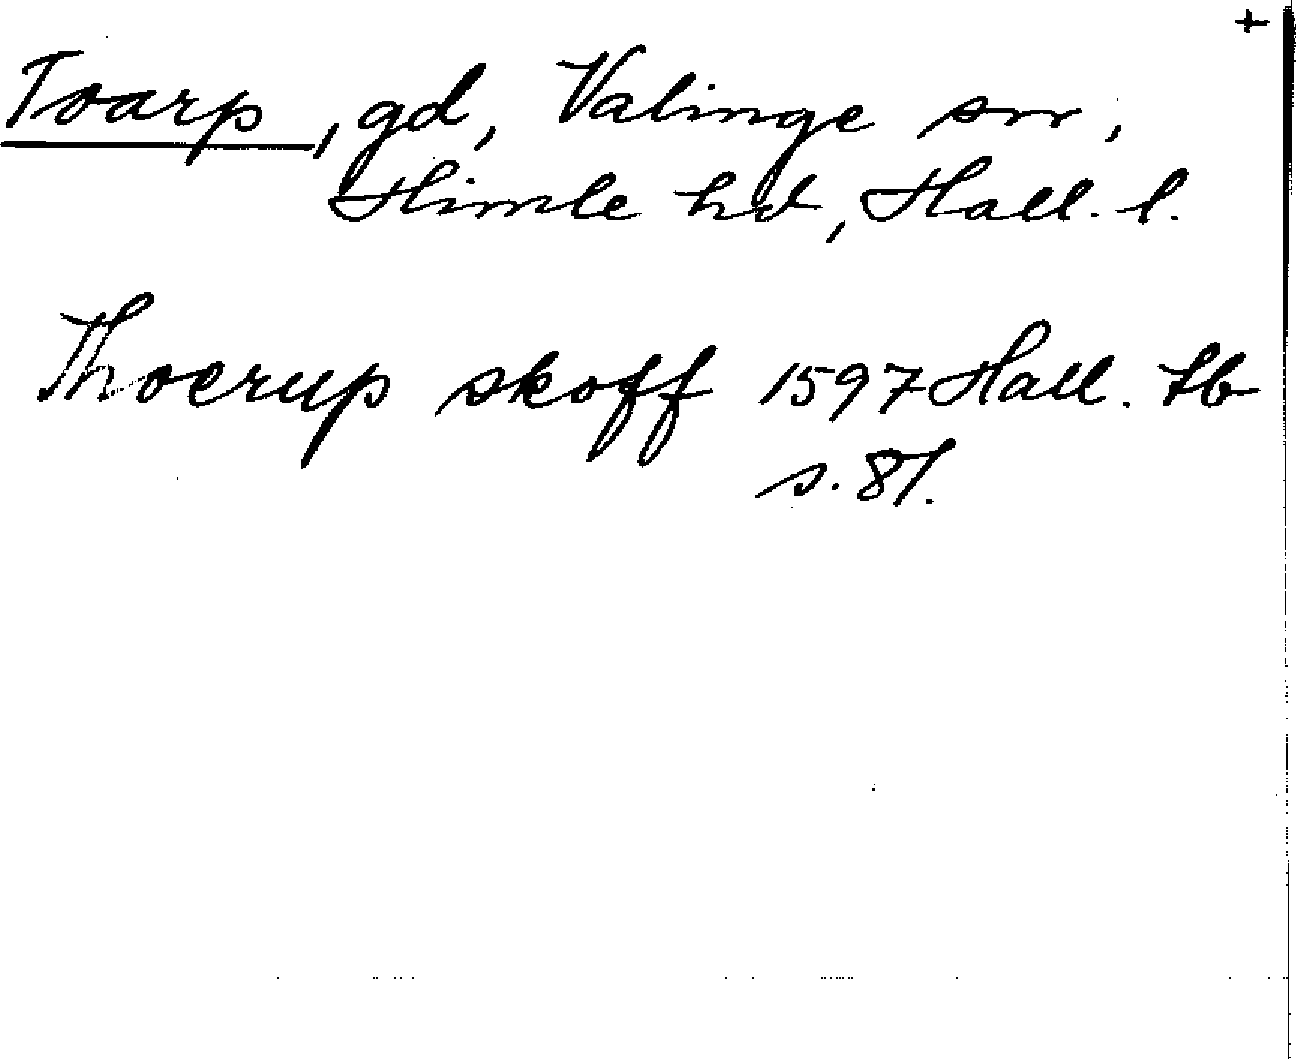 +
Toarp, gd, Valinge sn,
Himle hd, Hall. l.
Thoerup skoff 1597 Hall. Lb
s. 87.